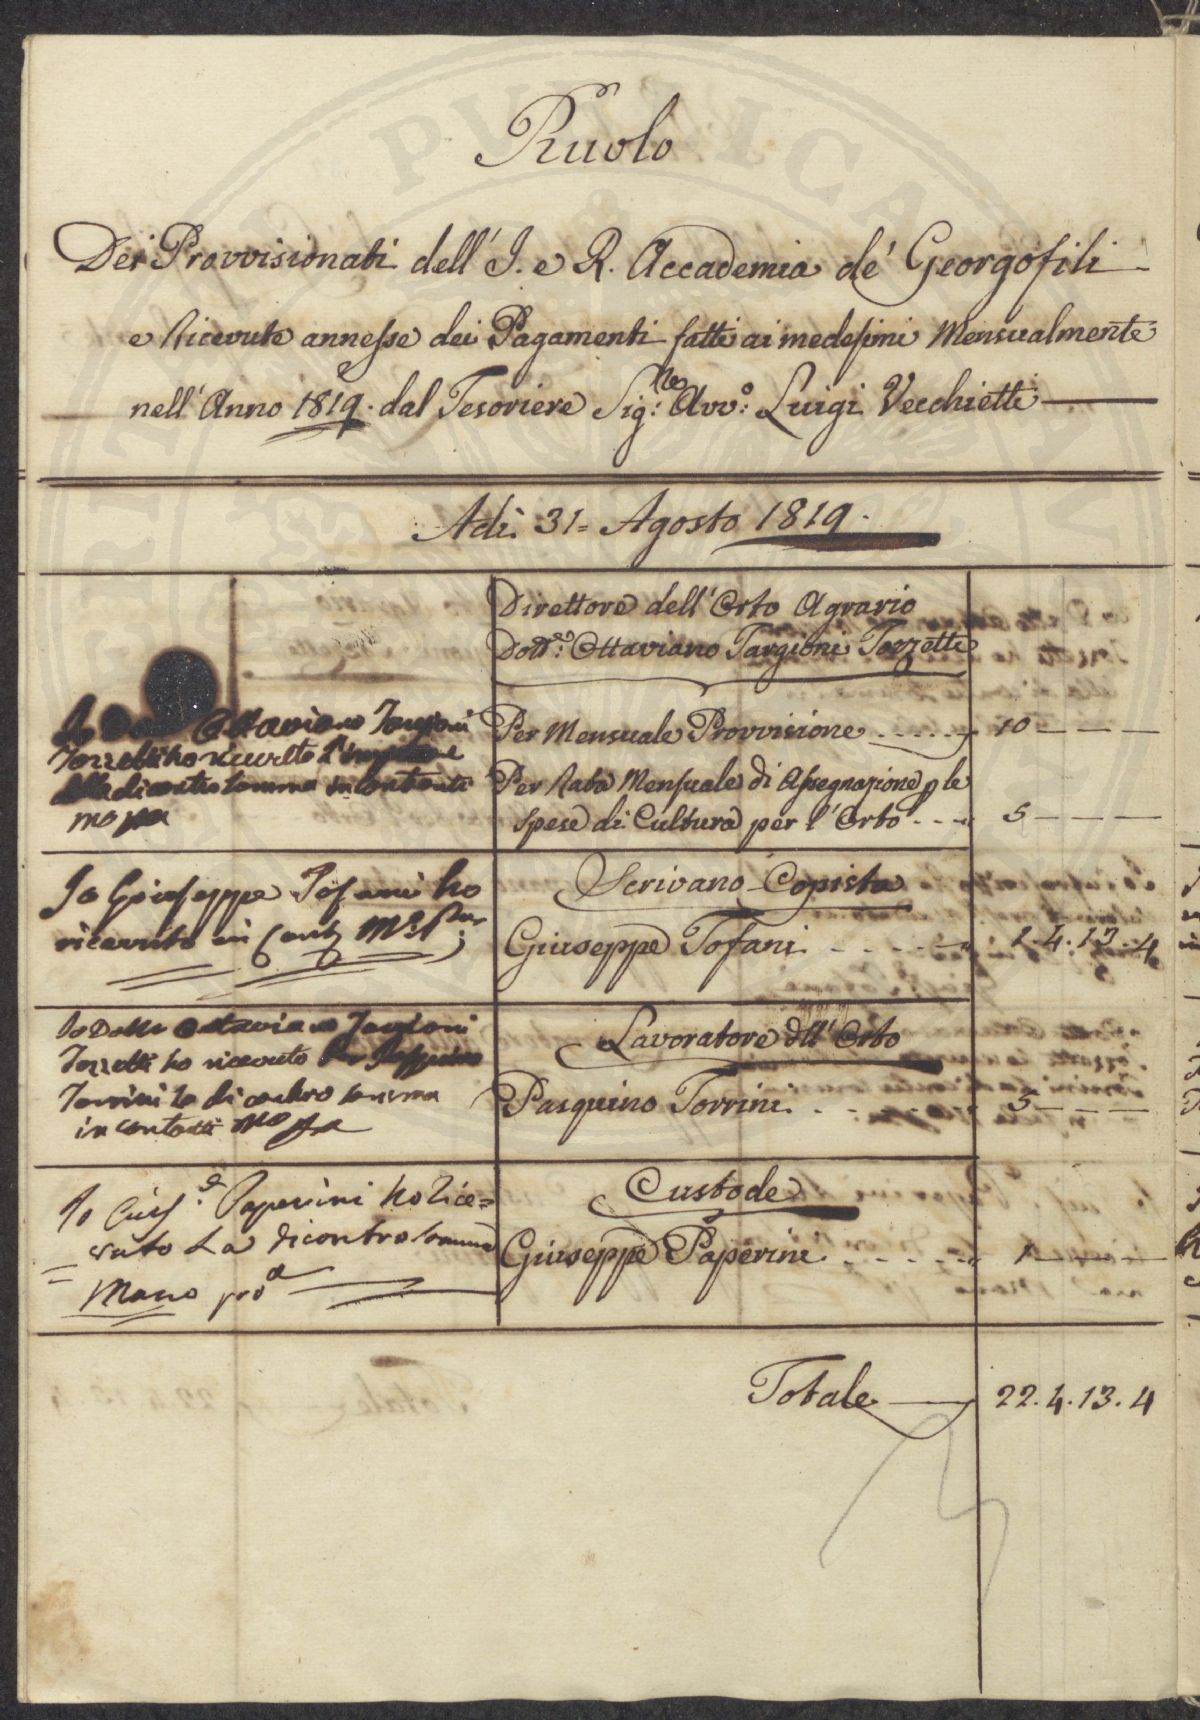 Ruolo
Dei Provvisionati dell' I. e R. Accademia de' Georgofili
e Ricevute annesse dei Pagamenti fatti ai medesimi Mensualmente
nell' Anno 1819. dal Tesoriere Sig:re Avv:o Luigi Vecchietti
Adì. 31= Agosto 1819.
Direttore dell' Orto Agrario
Dott:e Ottaviano Targioni Tozzetti
Io Dott Ottaviano Targioni
Tozzetti ho ricevuto
di contro somma in contanti
mo pa
Per Mensuale Provvisione 10
Per Rata Mensuale di Assegnazione p le
Spese di Cultura per l' Orto 5
Io Giuseppe Tofani ho
ricevuto in Conti Mo Pa
Scrivano Copista
Giuseppe Tofani 1.4.13.4
Io Dott Ottaviano Targioni
Tozzetti ho ricevuto per Pasquino
Torrini la di contro somma
in contati Mo pa
Lavoratore dll' Orto
Pasquino Torrini 5
Io Gius.e Paperini ho rice=
vuto La dicontro somma
Mano pro.a
Custode
Giuseppe Paperini 1
Totale 22.4.13.4